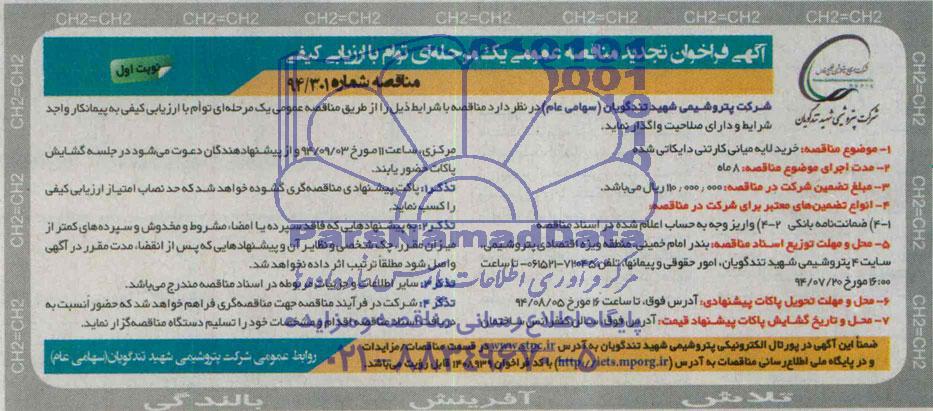 CH2=CH2 CH2=CH2 CH2=CH2 CH2=CH2 CH2=CH2 CH2=CH2 CH2=CH2
آگهی فراخوان تجدید مناقصه عمومی یک مرحله‌ای توام با ارزیابی کیفی
نوبت اول
مناقصه شماره ۹۴/۳۰۱
شرکت پتروشیمی شهید تندگویان
شرکت پتروشیمی شهید تندگویان (سهامی عام) در نظر دارد مناقصه با شرایط ذیل را از طریق مناقصه عمومی یک مرحله‌ای توأم با ارزیابی کیفی به پیمانکار واجد
شرایط و دارای صلاحیت واگذار نماید.
۱- موضوع مناقصه: خرید لایه میانی کارتنی دایکاتی شده
۲- مدت اجرای موضوع مناقصه: ۸ ماه
۳- مبلغ تضمین شرکت در مناقصه: ۱۱۰,۰۰۰,۰۰۰ ریال می‌باشد.
۴- انواع تضمین‌های معتبر برای شرکت در مناقصه:
۴-۱) ضمانت‌نامه بانکی ۴-۲) واریز وجه به حساب اعلام شده در اسناد مناقصه
۵- محل و مهلت توزیع اسناد مناقصه: بندر امام خمینی، منطقه ویژه اقتصادی پتروشیمی،
سایت ۴ پتروشیمی شهید تندگویان، امور حقوقی و پیمانها، تلفن ۷۲۰۴۵-۰۶۱۵۲۱ تا ساعت
۱۶:۰۰ مورخ ۹۴/۰۷/۲۰
۶- محل و مهلت تحویل پاکات پیشنهادی: آدرس فوق، تا ساعت ۱۶ مورخ ۹۴/۰۸/۰۵
۷- محل و تاریخ گشایش پاکات پیشنهاد قیمت: آدرس فوق، سالن کنفرانس ساختمان
مرکزی، ساعت ۱۱ مورخ ۹۴/۰۹/۰۳ و از پیشنهاددهندگان دعوت می‌شود در جلسه گشایش
پاکات حضور یابند.
تذکر۱: پاکت پیشنهادی مناقصه‌گری گشوده خواهد شد که حد نصاب امتیاز ارزیابی کیفی
را کسب نماید.
تذکر۲: به پیشنهادهایی که فاقد سپرده یا امضا، مشروط و مخدوش و سپرده‌های کمتر از
میزان مقرر، چک شخصی و نظایر آن و پیشنهادهایی که پس از انقضاء مدت مقرر در آگهی
واصل شود مطلقاً ترتیب اثر داده نخواهد شد.
تذکر۳: سایر اطلاعات و جزئیات مربوطه در اسناد مناقصه مندرج می‌باشد.
تذکر۴: شرکت در فرآیند مناقصه جهت مناقصه‌گری فراهم خواهد شد که حضور اُنسبت به
دریافت اسناد مناقصه اقدام و مشخصات خود را تسلیم دستگاه مناقصه‌گزار نماید.
ضمناً این آگهی در پورتال الکترونیکی پتروشیمی شهید تندگویان به آدرس www.stpc.ir در قسمت مناقصات مزایدات
و در پایگاه ملی اطلاع‌رسانی مناقصات به آدرس (http://iets.mporg.ir) با کد فراخوان ۱۴۰۸۹۳۹ قابل رویت می‌باشد.
روابط عمومی شرکت پتروشیمی شهید تندگویان (سهامی عام)
ParsNamadData
مرکز فرآوری اطلاعات پارس نماد داده‌ها
پایگاه اطلاع رسانی مناقصه و مزایده
۰۲۱-۸۸۳۴۹۶۷۰-۵
تلاش آفرینش بالندگی